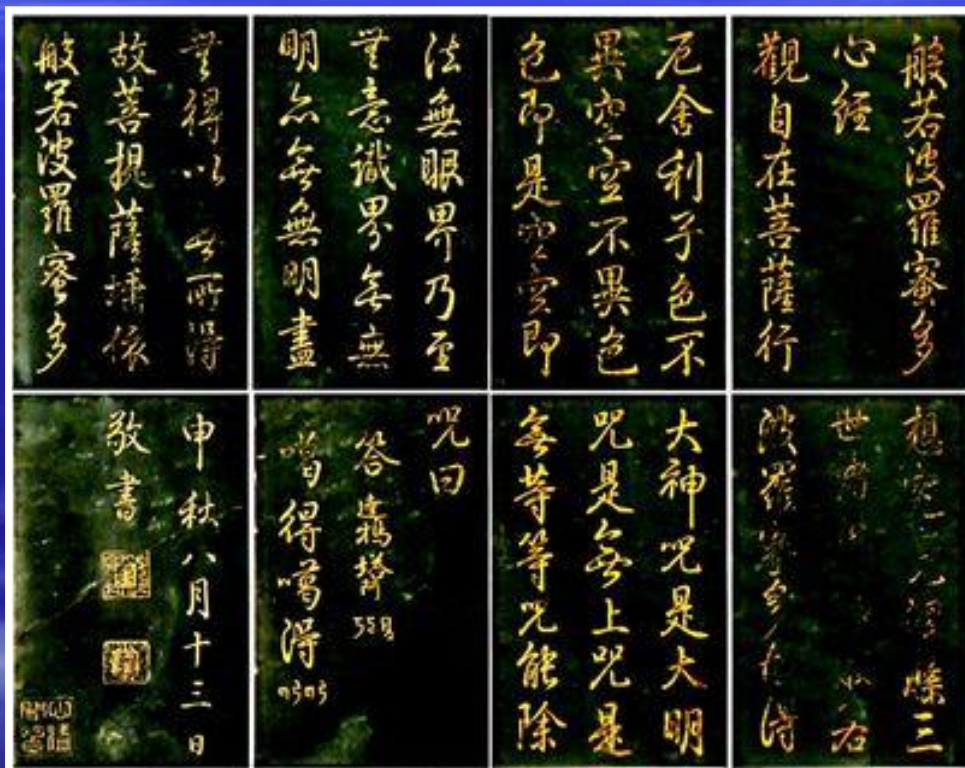 般若波羅蜜多
心經
觀自在菩薩行
厄舍利子色不
異空空不異色
色即是空空即
法無眼界乃至
無意識界無無
明亦無無明盡
無得以無所得
故菩提薩埵依
般若波羅蜜多
想三
世若
波羅蜜多故得
大神咒是大明
咒是無上咒是
無等等咒能除
咒曰
答
噶得噶得
申秋八月十三日
敬書